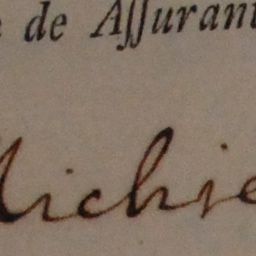 de Aſſurant
Michie